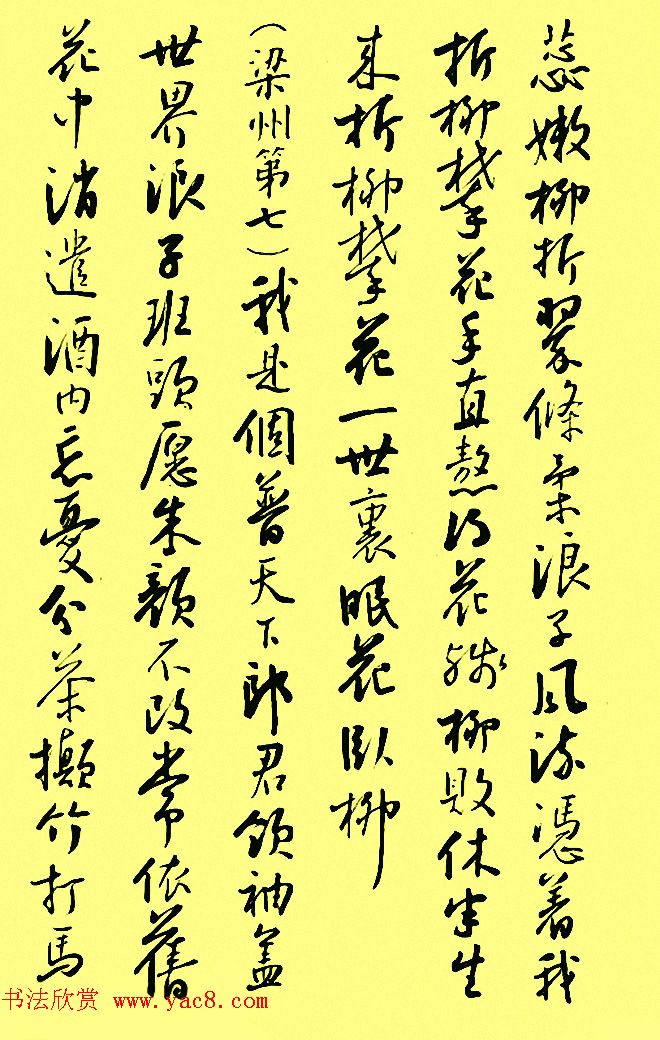 蕊嫩柳折翠條柔浪子風流憑着我
折柳攀花手直熬得花殘柳敗休半生
来折柳攀花一世裏眠花臥柳
（梁州第七）我是個普天下郎君領袖盖
世界浪子班頭愿朱顏不改常依舊
花中消遣酒内忘憂分茶攧竹打馬
书法欣赏 www.yac8.com